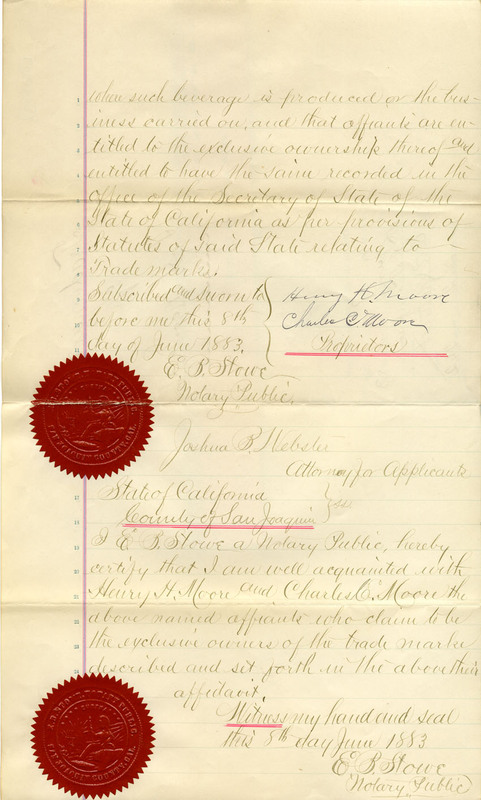 when such beverage is produced or the bus-
iness carried on, and that affiants are en-
titled to the exclusive ownership thereof and
entitled to have the same recorded in the
office of the Secretary of State of the
State of California as per provisions of
Statutes of said State relating to
Trade marks.
Subscribed and sworn to
before me this 8th
day of June 1883.
E. B. Stowe
Notary Public.
Henry H. Moore
Charles C. Moore
Proprietors
Joshua B. Webster
Attorney for Applicants
State of California
County of San Joaquin } ss
I E. B. Stowe a Notary Public, hereby
certify that I am well acquainted with
Henry H. Moore and Charles C. Moore the
above named affiants who claim to be
the exclusive owners of the trade marke
described and set forth in the above their
affidavit.
Witness my hand and seal
this 8th day June 1883
E. B. Stowe
Notary Public